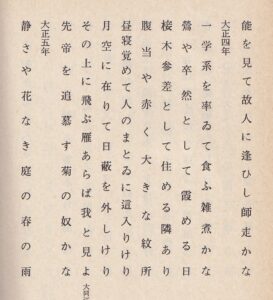 能を見て故人に逢ひし師走かな
大正四年
一学系を率ゐて食ふ雑煮かな
鶯や卒然として霞める日
桜木参差として住める隣あり
腹当や赤く大きな紋所
昼寝覚めて人のまとゐに這入りけり
月空に在りて日蔽を外しけり
その上に飛ぶ雁あらば我と見よ
先帝を追慕す菊の奴かな
大正五年
静さや花なき庭の春の雨